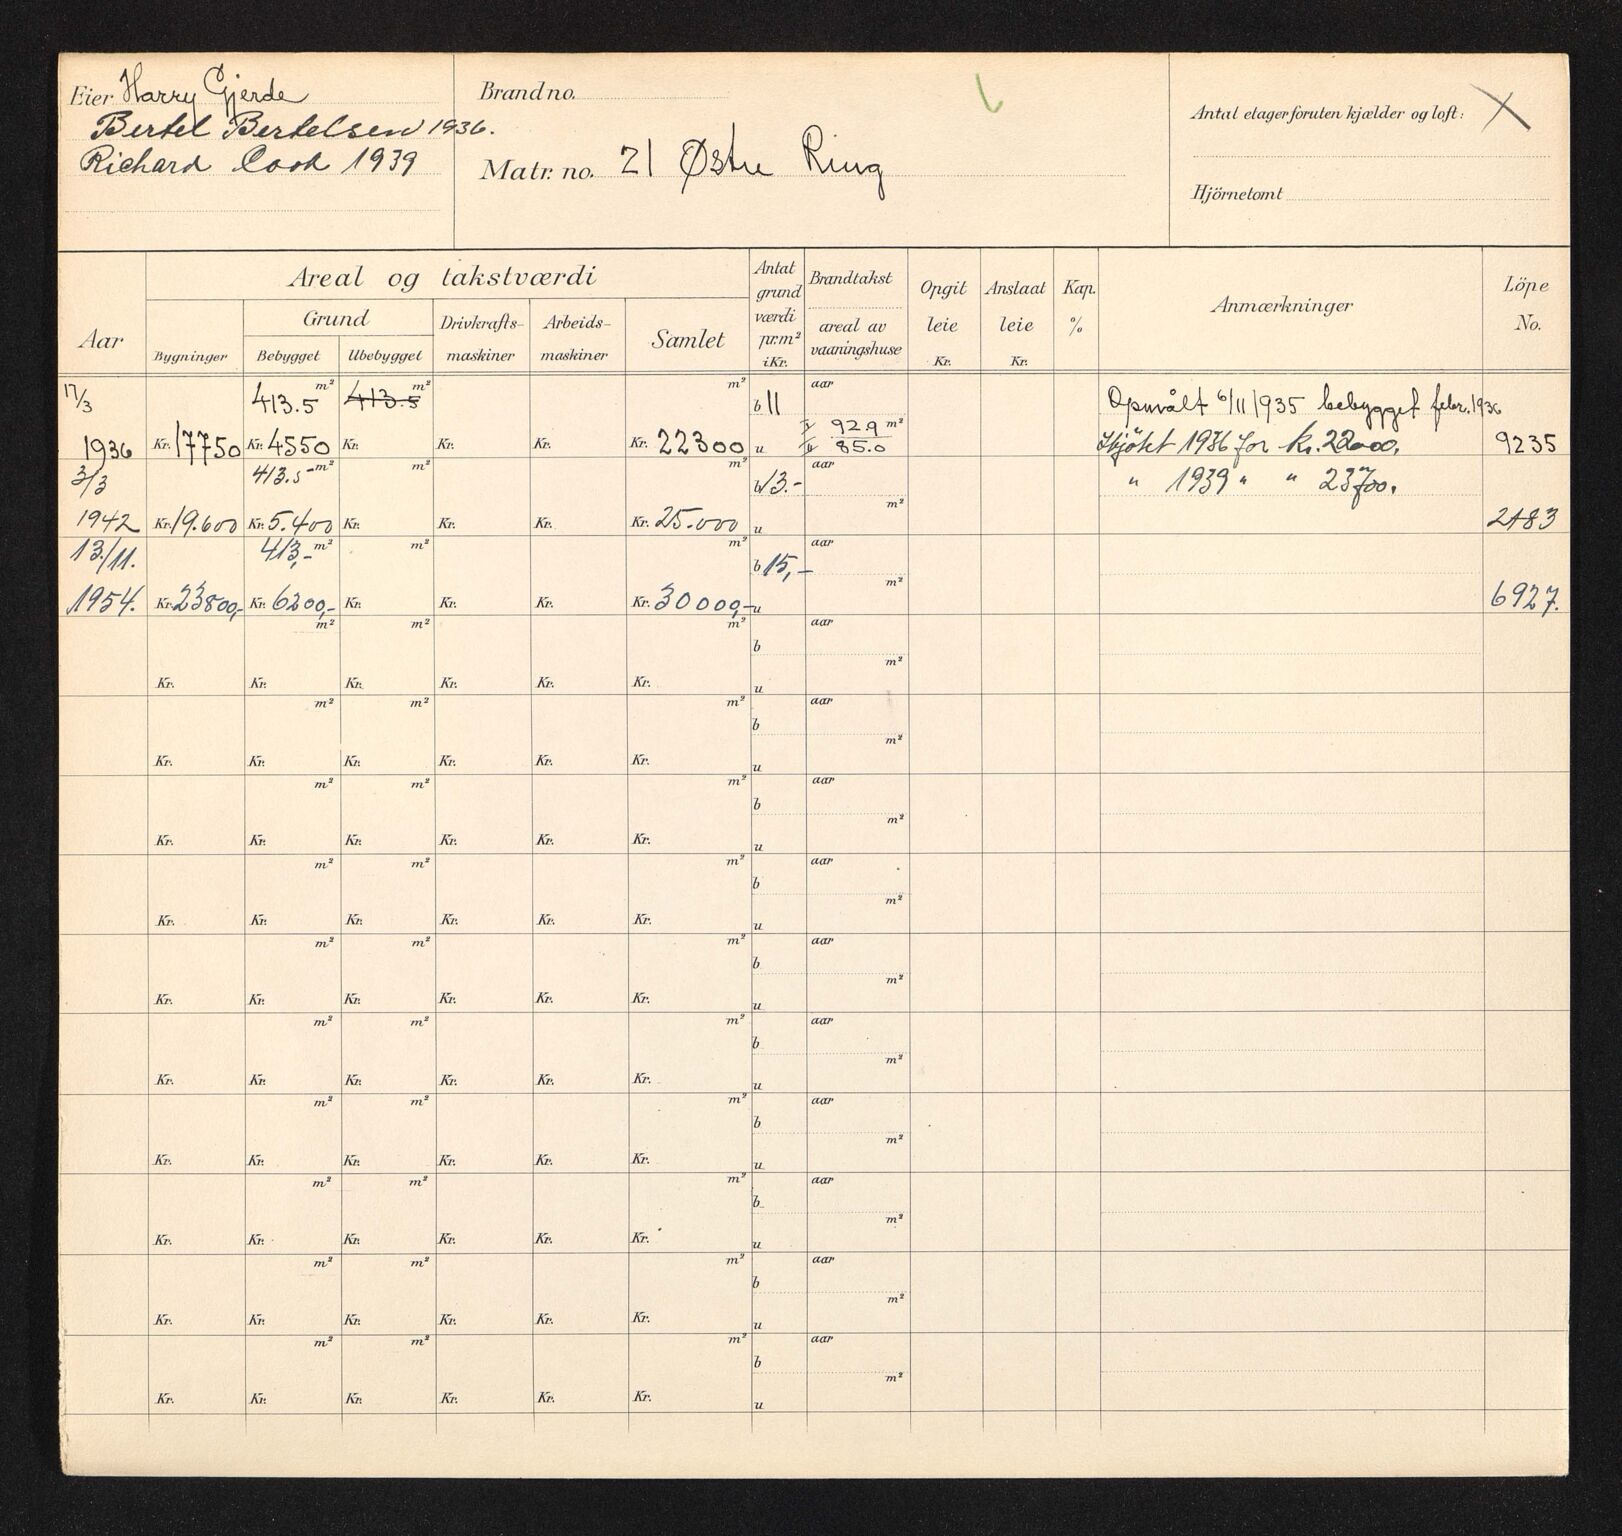 Eier Harry Gjerde
Bertel Bertelsen 1936.
Richard Cook 1939
Brand no.
Matr. no. 21 Østre Ring
Antal etager foruten kjælder og loft:
Hjörnetomt
Aar
Areal og takstværdi
Bygninger
Grund
Bebygget Ubebygget
Drivkrafts-maskiner
Arbeids-maskiner
Samlet
Antat grund værdi pr. m² i Kr.
Brandtakst
areal av vaaningshuse
Opgit leie Kr.
Anslaat leie Kr.
Kap. %
Anmærkninger
Löpe No.
17/3 413.5 m² 413.5 m² m² b 11 aar Opmålt 6/11 1935 bebygget febr. 1936
1936 Kr. 17750 Kr. 4550 Kr. Kr. Kr. Kr. 22300 u 92.9 m² 85.0 Skjøtet 1936 for kr. 22000. 9235
3/3 413.5 m² m² m² b 13.- aar " 1939 " " 23700.
1942 Kr. 19.600 Kr. 5.400 Kr. Kr. Kr. Kr. 25.000 u m² 2183
13./11. 413,- m² m² m² b 15,- aar
1954. Kr. 23800,- Kr. 6200,- Kr. Kr. Kr. Kr. 30000,- u m² 6927.
m² m² m² b aar
Kr. Kr. Kr. Kr. Kr. Kr. u m²
m² m² m² b aar
Kr. Kr. Kr. Kr. Kr. Kr. u m²
m² m² m² b aar
Kr. Kr. Kr. Kr. Kr. Kr. u m²
m² m² m² b aar
Kr. Kr. Kr. Kr. Kr. Kr. u m²
m² m² m² b aar
Kr. Kr. Kr. Kr. Kr. Kr. u m²
m² m² m² b aar
Kr. Kr. Kr. Kr. Kr. Kr. u m²
m² m² m² b aar
Kr. Kr. Kr. Kr. Kr. Kr. u m²
m² m² m² b aar
Kr. Kr. Kr. Kr. Kr. Kr. u m²
m² m² m² b aar
Kr. Kr. Kr. Kr. Kr. Kr. u m²
m² m² m² b aar
Kr. Kr. Kr. Kr. Kr. Kr. u m²